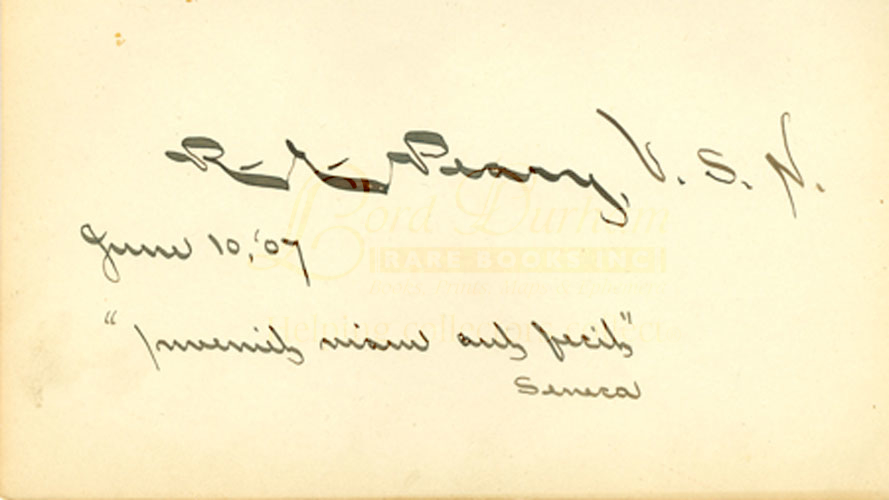 R. E. Peary, U. S. N.
June 10, '07
"Inveniet viam aut faciet"
Seneca
Lord Durham
RARE BOOKS INC.
Helping collectors collect